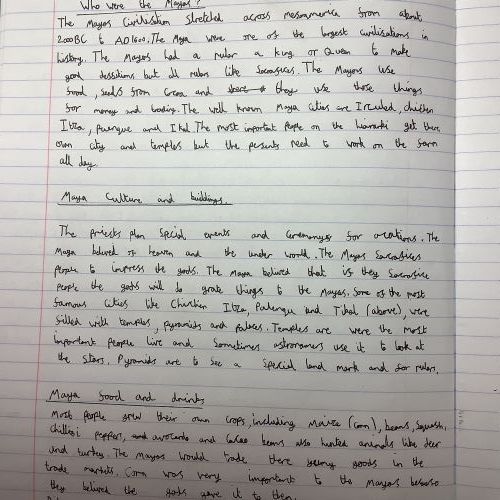 Who were the Mayas?
The Mayas Civilisation stretched across mesoamerica from about
2000BC to AD1600. The Maya were one of the largest civilisations in
history. The Mayas had a ruler a king or Queen to make
good but all rulers like Sacrasices. The Mayans use
food, seeds from Cocoa and they use those things
for money and trading. The well known Maya cities are chichen
Itza, Palenque and The most important people on the get there
own city and temples but the need to work on the farm
all day.
Maya Culture and buildings.
The Priests plan special events and for The
Maya belived of heaven and the under world. The Mayas Sacrasices
People to impress the gods. The Maya belived that is they Sacrasice
people the gods will do grate things to the Mayas. Some of the most
famous cities like Itza, Palenqu and Tikal (above), were
filled with temples, pyramids and palaces. Temples are were the most
important people live and sometimes astronomers use it to look at
the stars. Pyramids are to see a special land mark and for rulers.
Maya food and drinks
Most people grew their own crops, including Maize (corn), beans, Squash,
peppers, and avocardo and cacao beans also hunted animals like deer
and turkey. The Mayans would trade there goods in the
trade markets. Corn was very important to the Mayas
they belived the gods gave it to them.